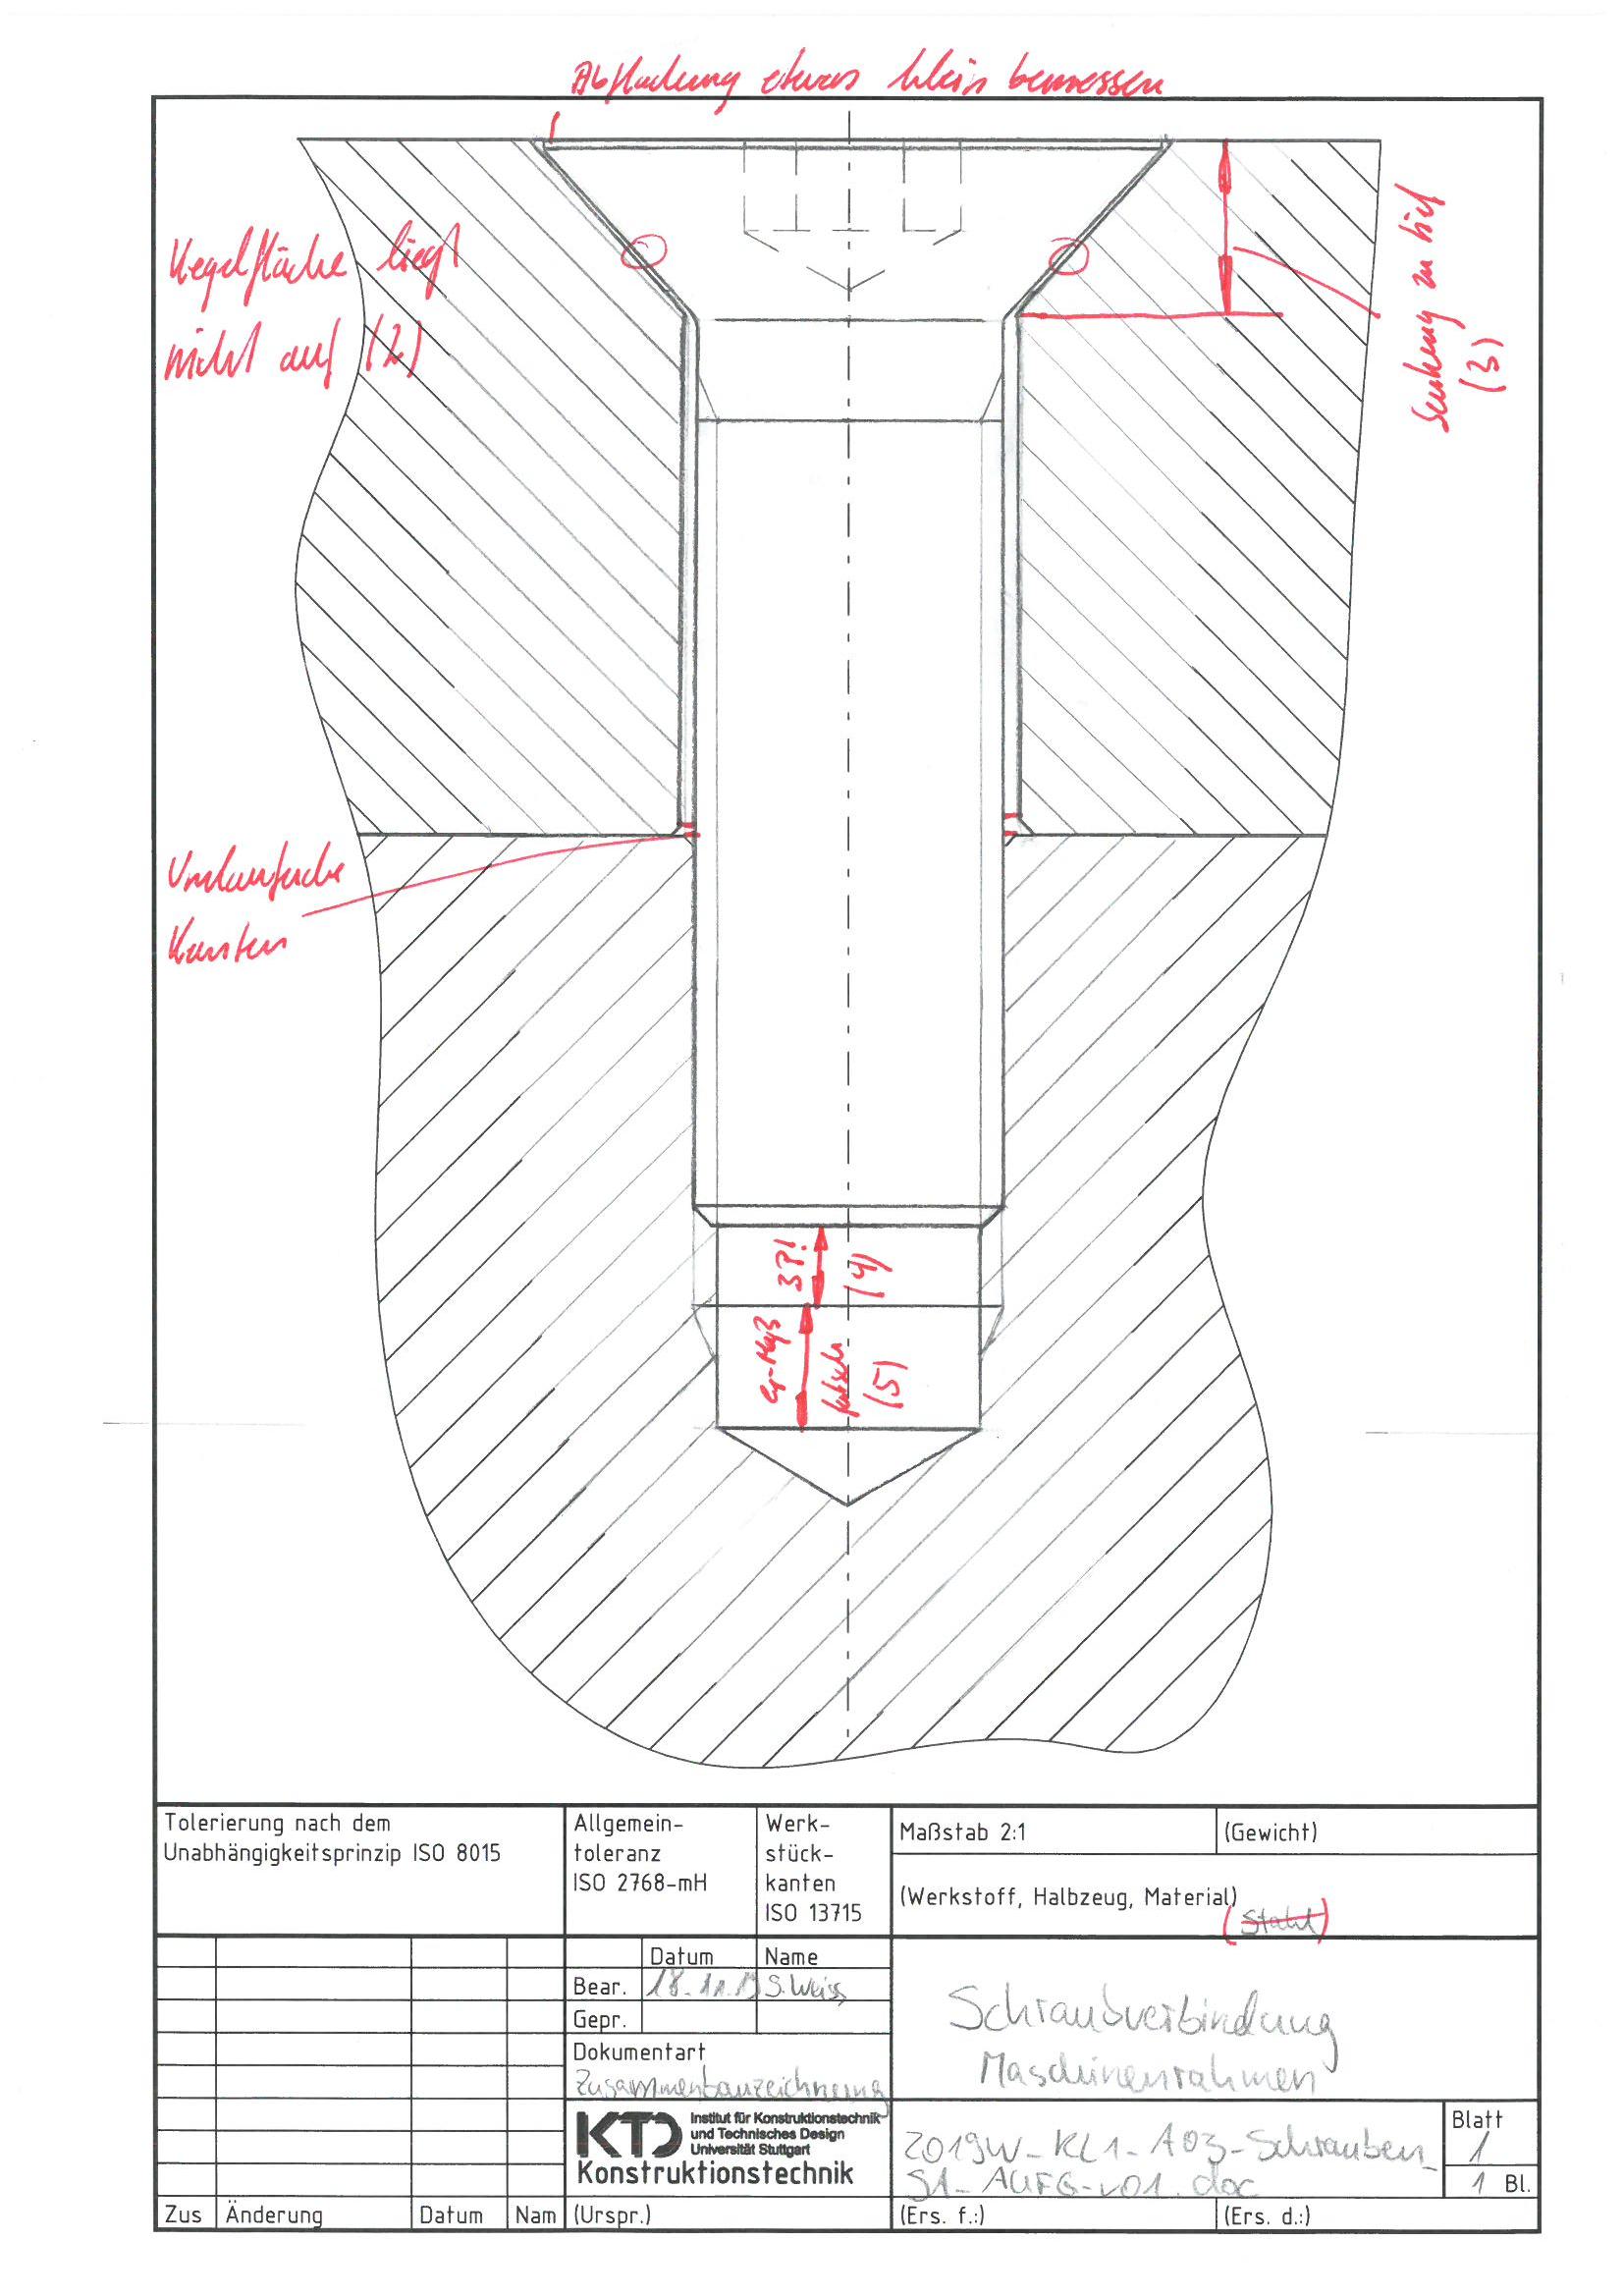 Abflachung etwas klein bemessen
Kegelfläche liegt
nicht auf (2)
Senkung zu tief
(3)
Umlaufende
Kanten
3P!
(4)
e1-Maß
falsch
(5)
Tolerierung nach dem
Unabhängigkeitsprinzip ISO 8015
Allgemein-
toleranz
ISO 2768-mH
Werk-
stück-
kanten
ISO 13715
Maßstab 2:1
(Gewicht)
(Werkstoff, Halbzeug, Material)
(Stahl)
Datum
Name
Bear.
18.11.19
S. Weiss
Gepr.
Dokumentart
Zusammenbauzeichnung
Schraubverbindung
Maschinenrahmen
KTD
Institut für Konstruktionstechnik
und Technisches Design
Universität Stuttgart
Konstruktionstechnik
2019W-KL1-A03-Schrauben-
S1-AUFG-v01.doc
Blatt
1
1 Bl.
Zus
Änderung
Datum
Nam
(Urspr.)
(Ers. f.:)
(Ers. d.:)